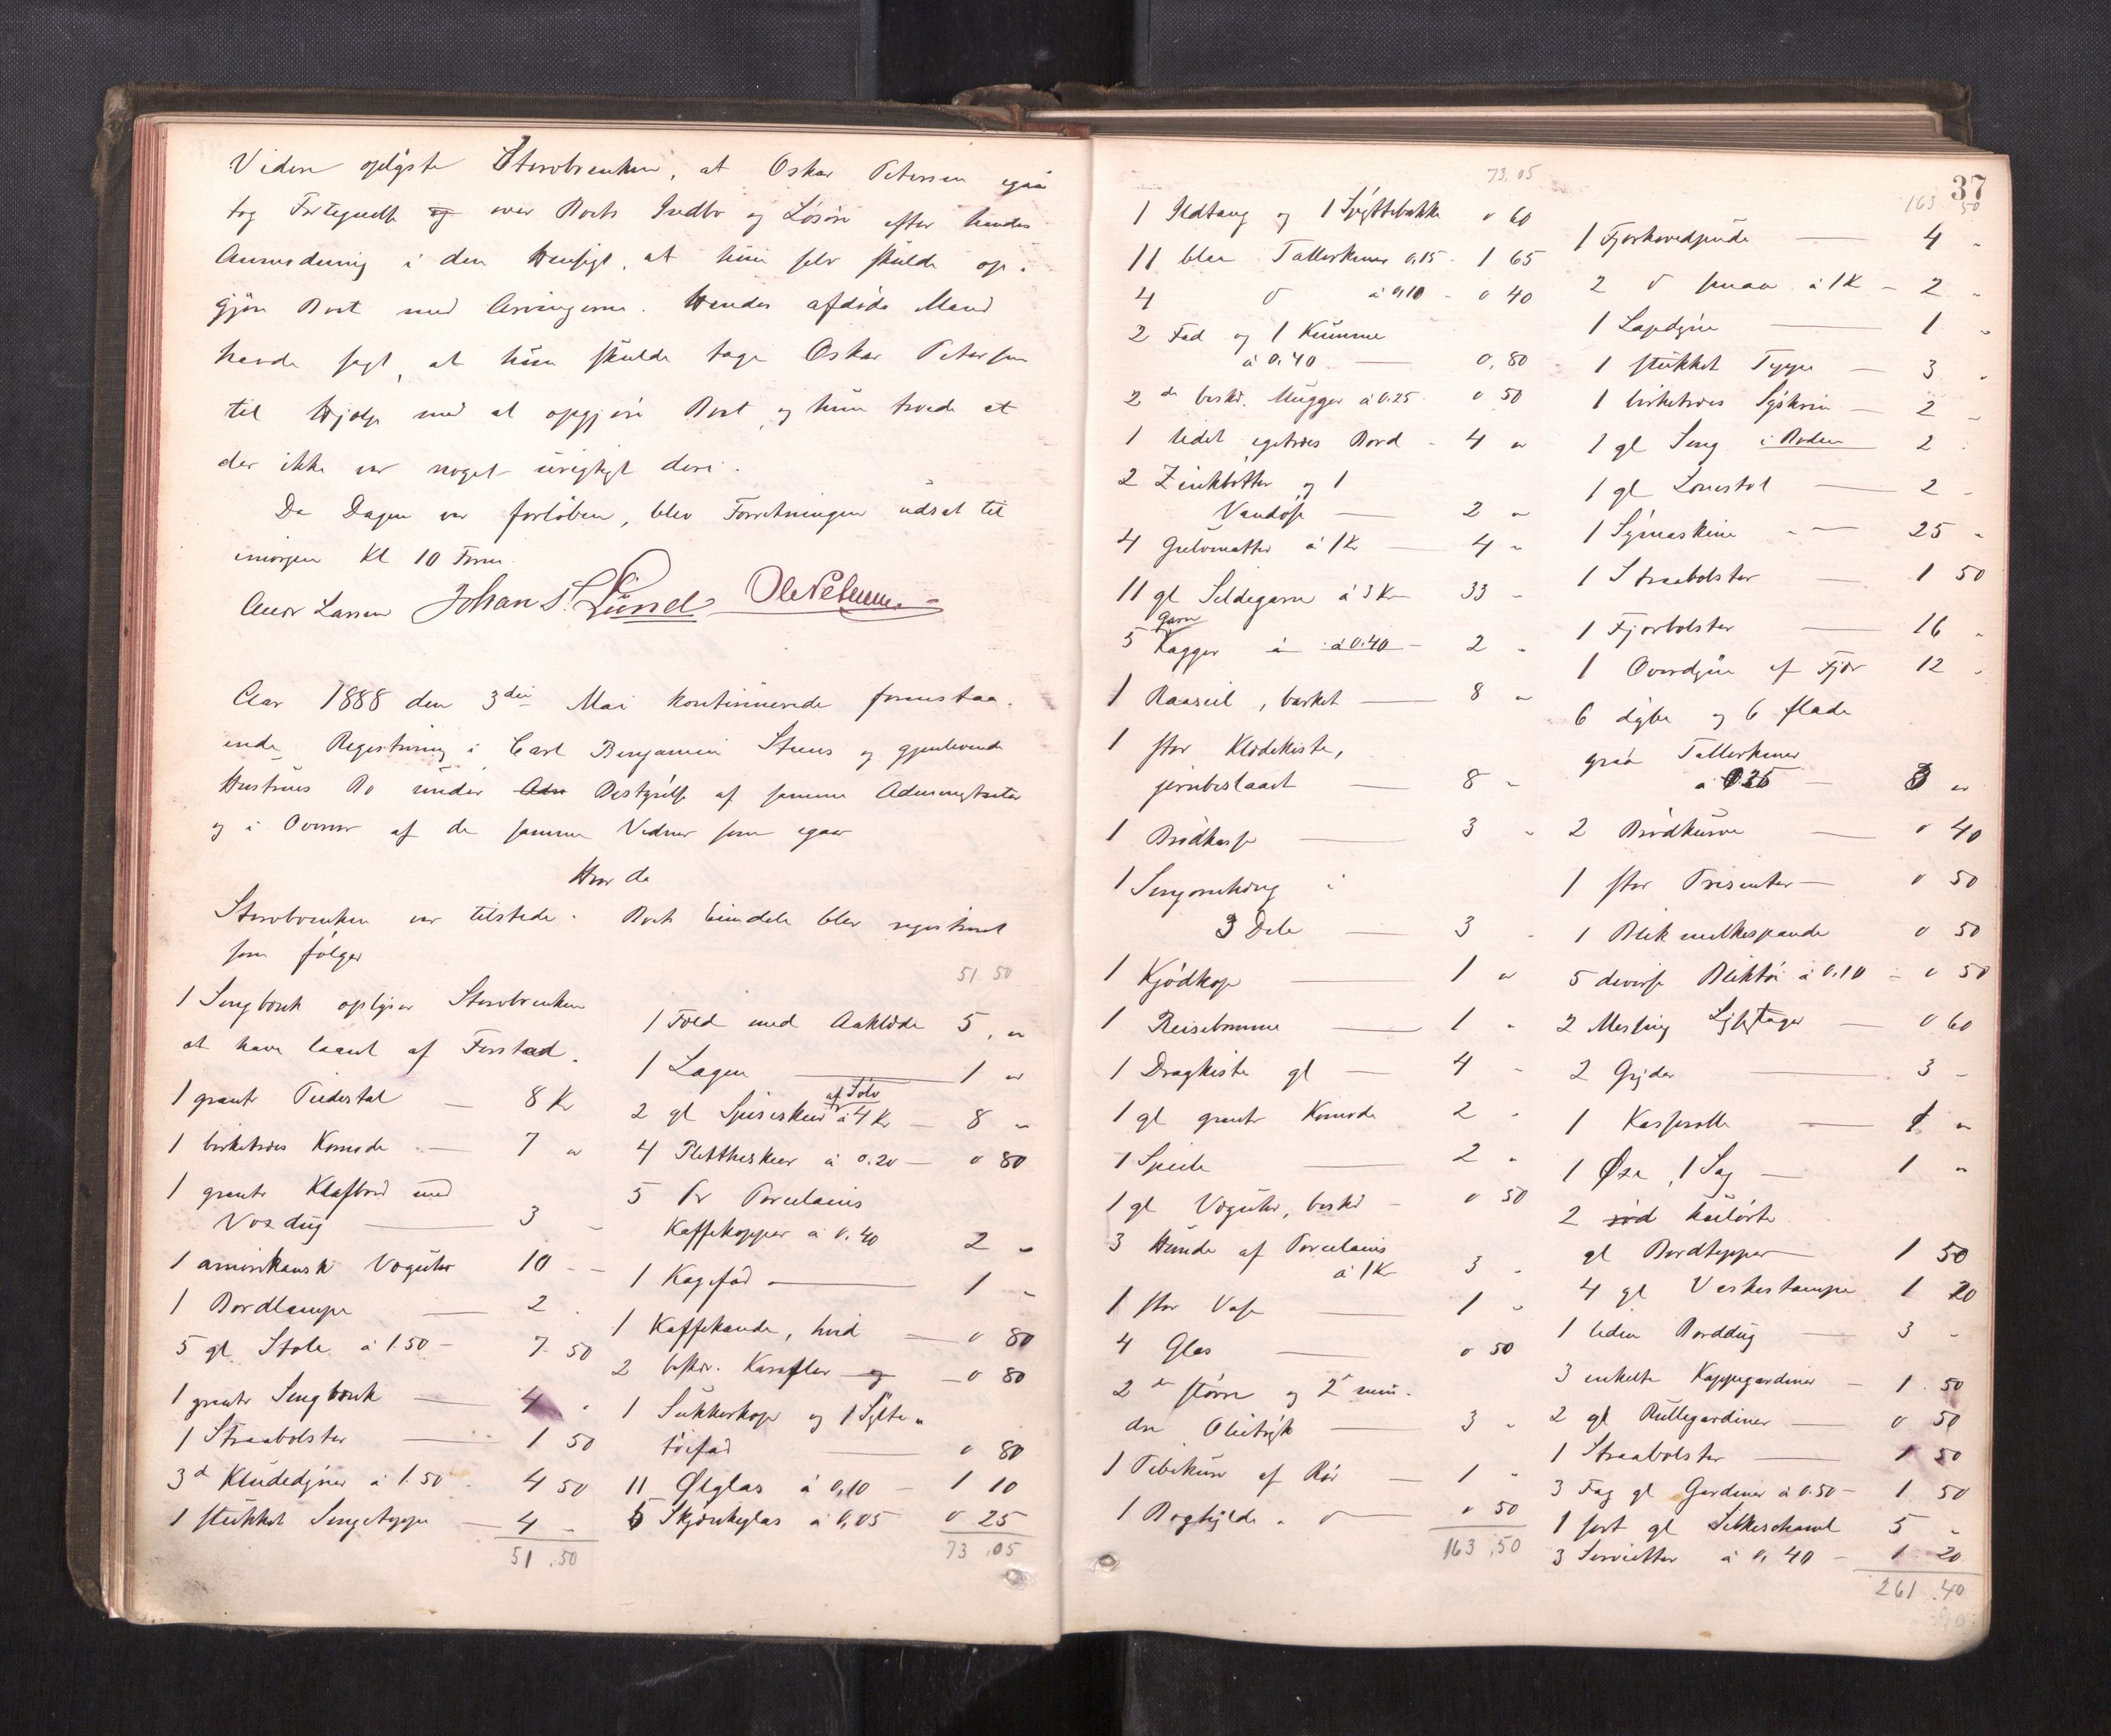 Videre oplyste Stervboenken, at Oskar Petersen igaar
tog Fortegnelse og over Boets Indbo og Løsøre efter hendes
Anmodning i den Hensigt, at hun selv skulde op-
gjøre Boet med Arvingerne. Hendes afdøde Mand
havde sagt, at hun skulde tage Oskar Petersen
til Hjælp med at opgjøre Boet, og hun troede at
der ikke var noget urigtigt deri.
Da Dagen var forløben, blev Forretningen udsat til
imorgen Kl 10 Form.
Andr Larsen Johan S. Lund Ole Petersen
Aar 1888 den 3die Mai kontinuerede foranstaa-
ende Registrering i Carl Benjamin Steens og gjenlevende
Hustrues Bo under Adm Bestyrelse af samme Administrator
og i Overvær af de samme Vidner som igaar
Hvor da
Stervboenken var tilstede. Boets Eiendele blev registreret
som følger
1 Sengbænk oplyser Stervboenken
at have laant af Forstad.
1 grantr Piedestal — 8 Kr
1 birketræs Komode — 7 "
1 grantr Klafbord med
Voxdug — 3 "
1 amerikansk Væguhr 10 "
1 Bordlampe — 2 "
5 gl Stole à 1.50 — 7 50
1 grantr Sengbænk — 4 "
1 Straabolster — 1 50
3 Kludedyner à 1.50 4 50
1 stukket Sengeteppe — 4 "
51.50
51.50
1 Fæld med Aaklæde 5 "
1 Lagen — 1 "
2 gl Spiseskeer af Sølv à 4 Kr — 8 "
4 Pletttheskeer à 0.20 — 0 80
5 Pr Porcelains
Kaffekopper à 0.40 2 "
1 Kagefad — 1 "
1 Kaffekande, hvid — 0 80
2 beskr. Karafler og — 0 80
1 Sukkerkop og 1 Sylte-
tøifad — 0 80
11 Ølglas à 0,10 — 1 10
5 Skjænkeglas à 0,05 0 25
73.05
37
73.05
1 Ildtang og 1 Spyttebakke 0 60
11 blaa Tallerkener 0,15 - 1 65
4 do à 0,10 - 0 40
2 Fad og 1 Kumme
à 0.40 — 0,80
2 beskr. Mugger à 0.25 0 50
1 lidet egetræs Bord - 4 "
2 Zinkbøtter og 1
Vandøse — 2 "
4 Gulvmatter à 1 Kr — 4 "
11 gl Sildegarn à 3 Kr 33 "
5 Garn Kagger à 0.40 - 2 "
1 Raaseil, barket — 8 "
1 stor Klædekiste,
jernbeslaaet — 8 "
1 Brødkasse — 3 "
1 Sengomhæng i
3 Dele — 3 "
1 Kjødkop — 1 "
1 Reisebomme — 1 "
1 Dragkiste gl — 4 "
1 gl grantr Komode 2 "
1 Speile — 2 "
1 gl Væguhr, beskr — 0 50
3 Hunde af Porcelains
à 1 Kr 3 "
1 stor Vase — 1 "
4 Glas — 0 50
2 større og 2 min-
dre Olietryk — 3 "
1 Pibekurv af Rør — 1 "
1 Boghylde " do — 0 50
163.50
163.50
1 Fjærhovedpude — 4 "
2 do smaa à 1 Kr — 2 "
1 Lapdyne — 1 "
1 stukket Teppe — 3 "
1 birketræs Syskrin — 2 "
1 gl Seng i Boden 2 "
1 gl Lænestol — 2 "
1 Symaskine — 25 "
1 Straabolster — 1 50
1 Fjærbolster — 16 "
1 Overdyne af Fjær 12 "
6 dybe og 6 flade
graa Tallerkener
à 0.25 — 3 "
2 Brødkurve — 0 40
1 stor Presenter — 0 50
1 Blik melkespande 0 50
5 diverse Bliktøi à 0,10 - 0 50
2 Messing Lysestager — 0 60
2 Gryder — 3 "
1 Kasserolle — 1 "
1 Øxe, 1 Sag — 1 "
2 rød kulørte
gl Bordtepper — 1 50
4 gl Vaskestampe 1 20
1 liden Borddug — 3 "
3 enkelte Kappegardiner — 1 50
2 gl Rullegardiner — 0 50
1 Straabolster — 1 50
3 Fag gl Gardiner à 0.50 — 1 50
1 sort gl Silkeschawl 5 "
3 Servietter à 0,40 — 1 20
261.40